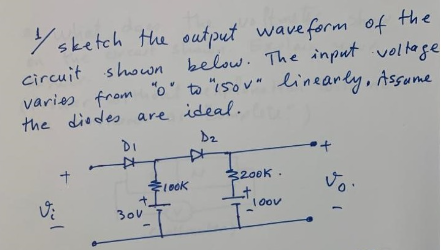 1/ sketch the output waveform of the
circuit shown below. The input voltage
varies from "0" to "150v" linearly. Assume
the diodes are ideal.
D1 D2
+ +
100K 200K.
Vi 30V + - + - 100V Vo.
- -